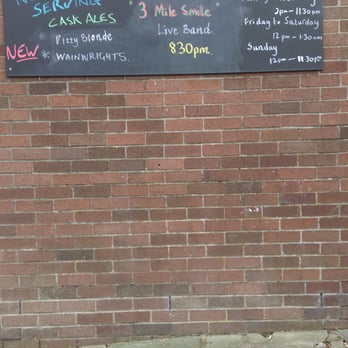 SERVING
CASK ALES
* Pitty Blonde
NEW
* WAINWRIGHTS.
"3 Mile Smile"
Live Band.
830pm.
2pm - 1130pm
Friday to Saturday
12pm - 1:30am
Sunday
12pm - 1130pm